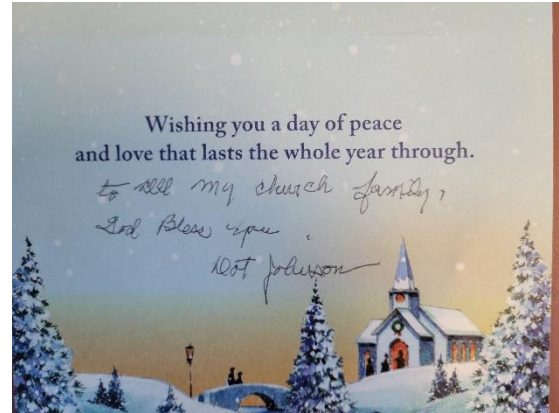 Wishing you a day of peace
and love that lasts the whole year through.
to all my church family,
God Bless you.
Dot Johnson